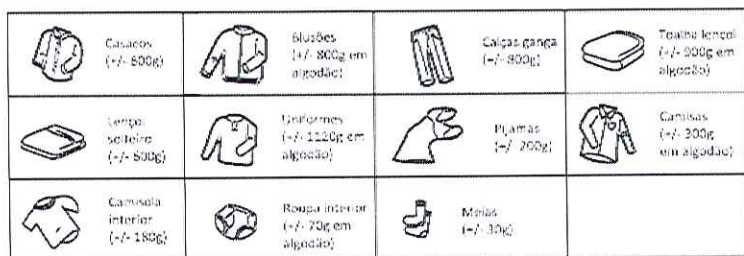 Casacos
(+/- 800g)
Blusões
(+/- 800g em
algodão)
Calças ganga
(+/- 800g)
Toalha lençol
(+/- 900g em
algodão)
Lençol
solteiro
(+/- 500g)
Uniformes
(+/- 1120g em
algodão)
Pijamas
(+/- 200g)
Camisas
(+/- 300g
em algodão)
Camisola
interior
(+/- 180g)
Roupa interior
(+/- 70g em
algodão)
Meias
(+/- 30g)